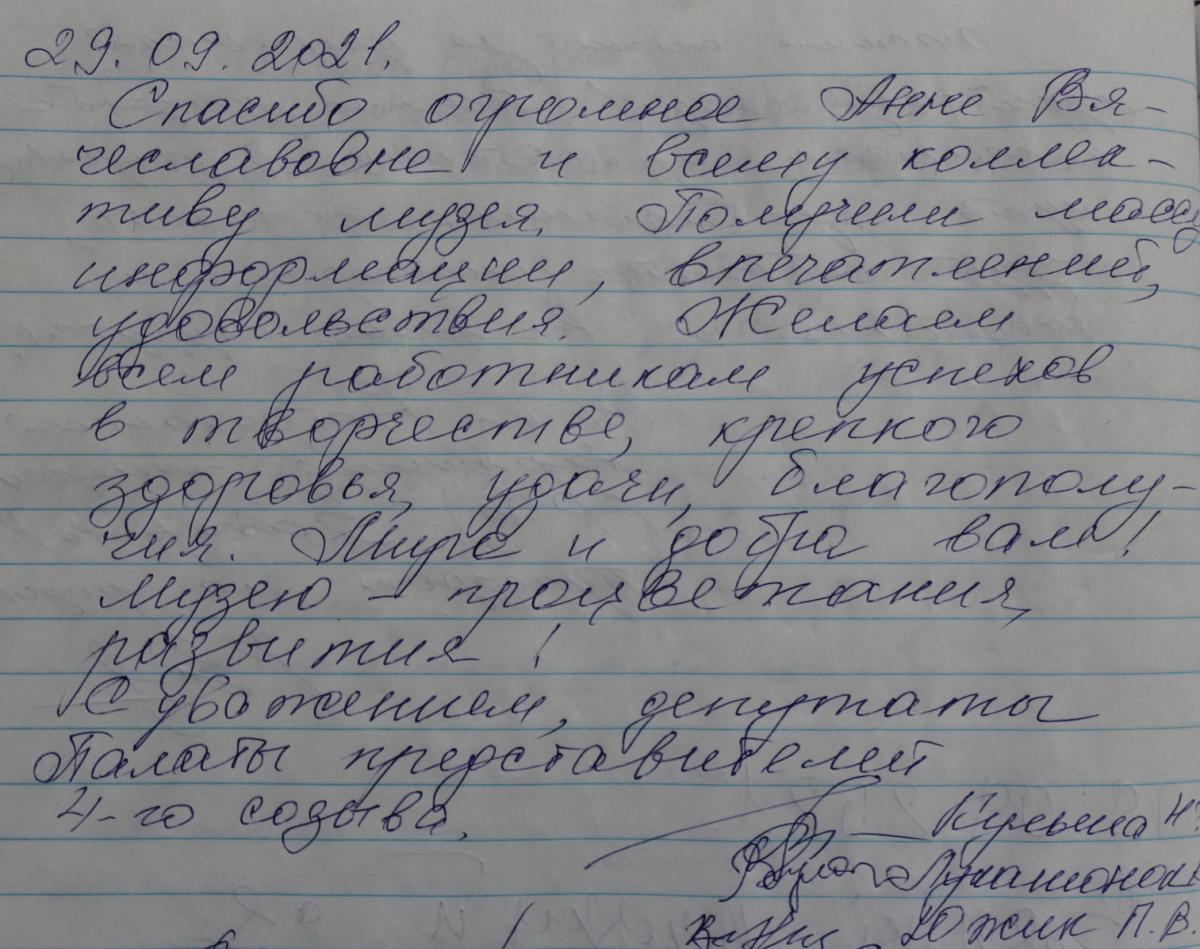 29.09.2021.
Спасибо огромное Анне Вя-
чеславовне и всему коллек-
тиву музея. Получили массу
информации, впечатлений,
удовольствия. Желаем
всем работникам успехов
в творчестве, крепкого
здоровья, удачи, благополу-
чия. Мира и добра вам!
Музею – процветания,
развития!
С уважением, депутаты
Палаты представителей
4-го созыва.
Южик П.В.